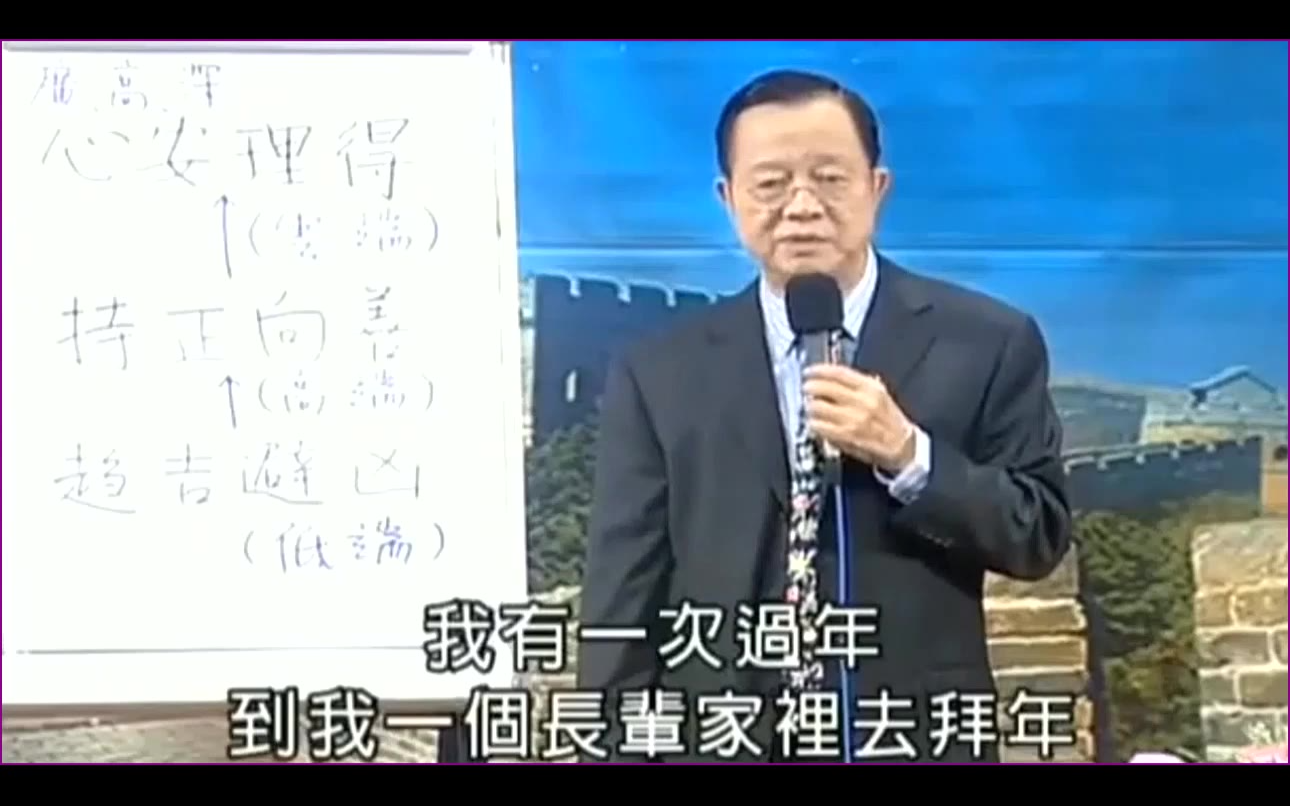 心安理得
↑(雲端)
持正向善
↑(高端)
趋吉避凶
(低端)
我有一次過年
到我一個長輩家裡去拜年